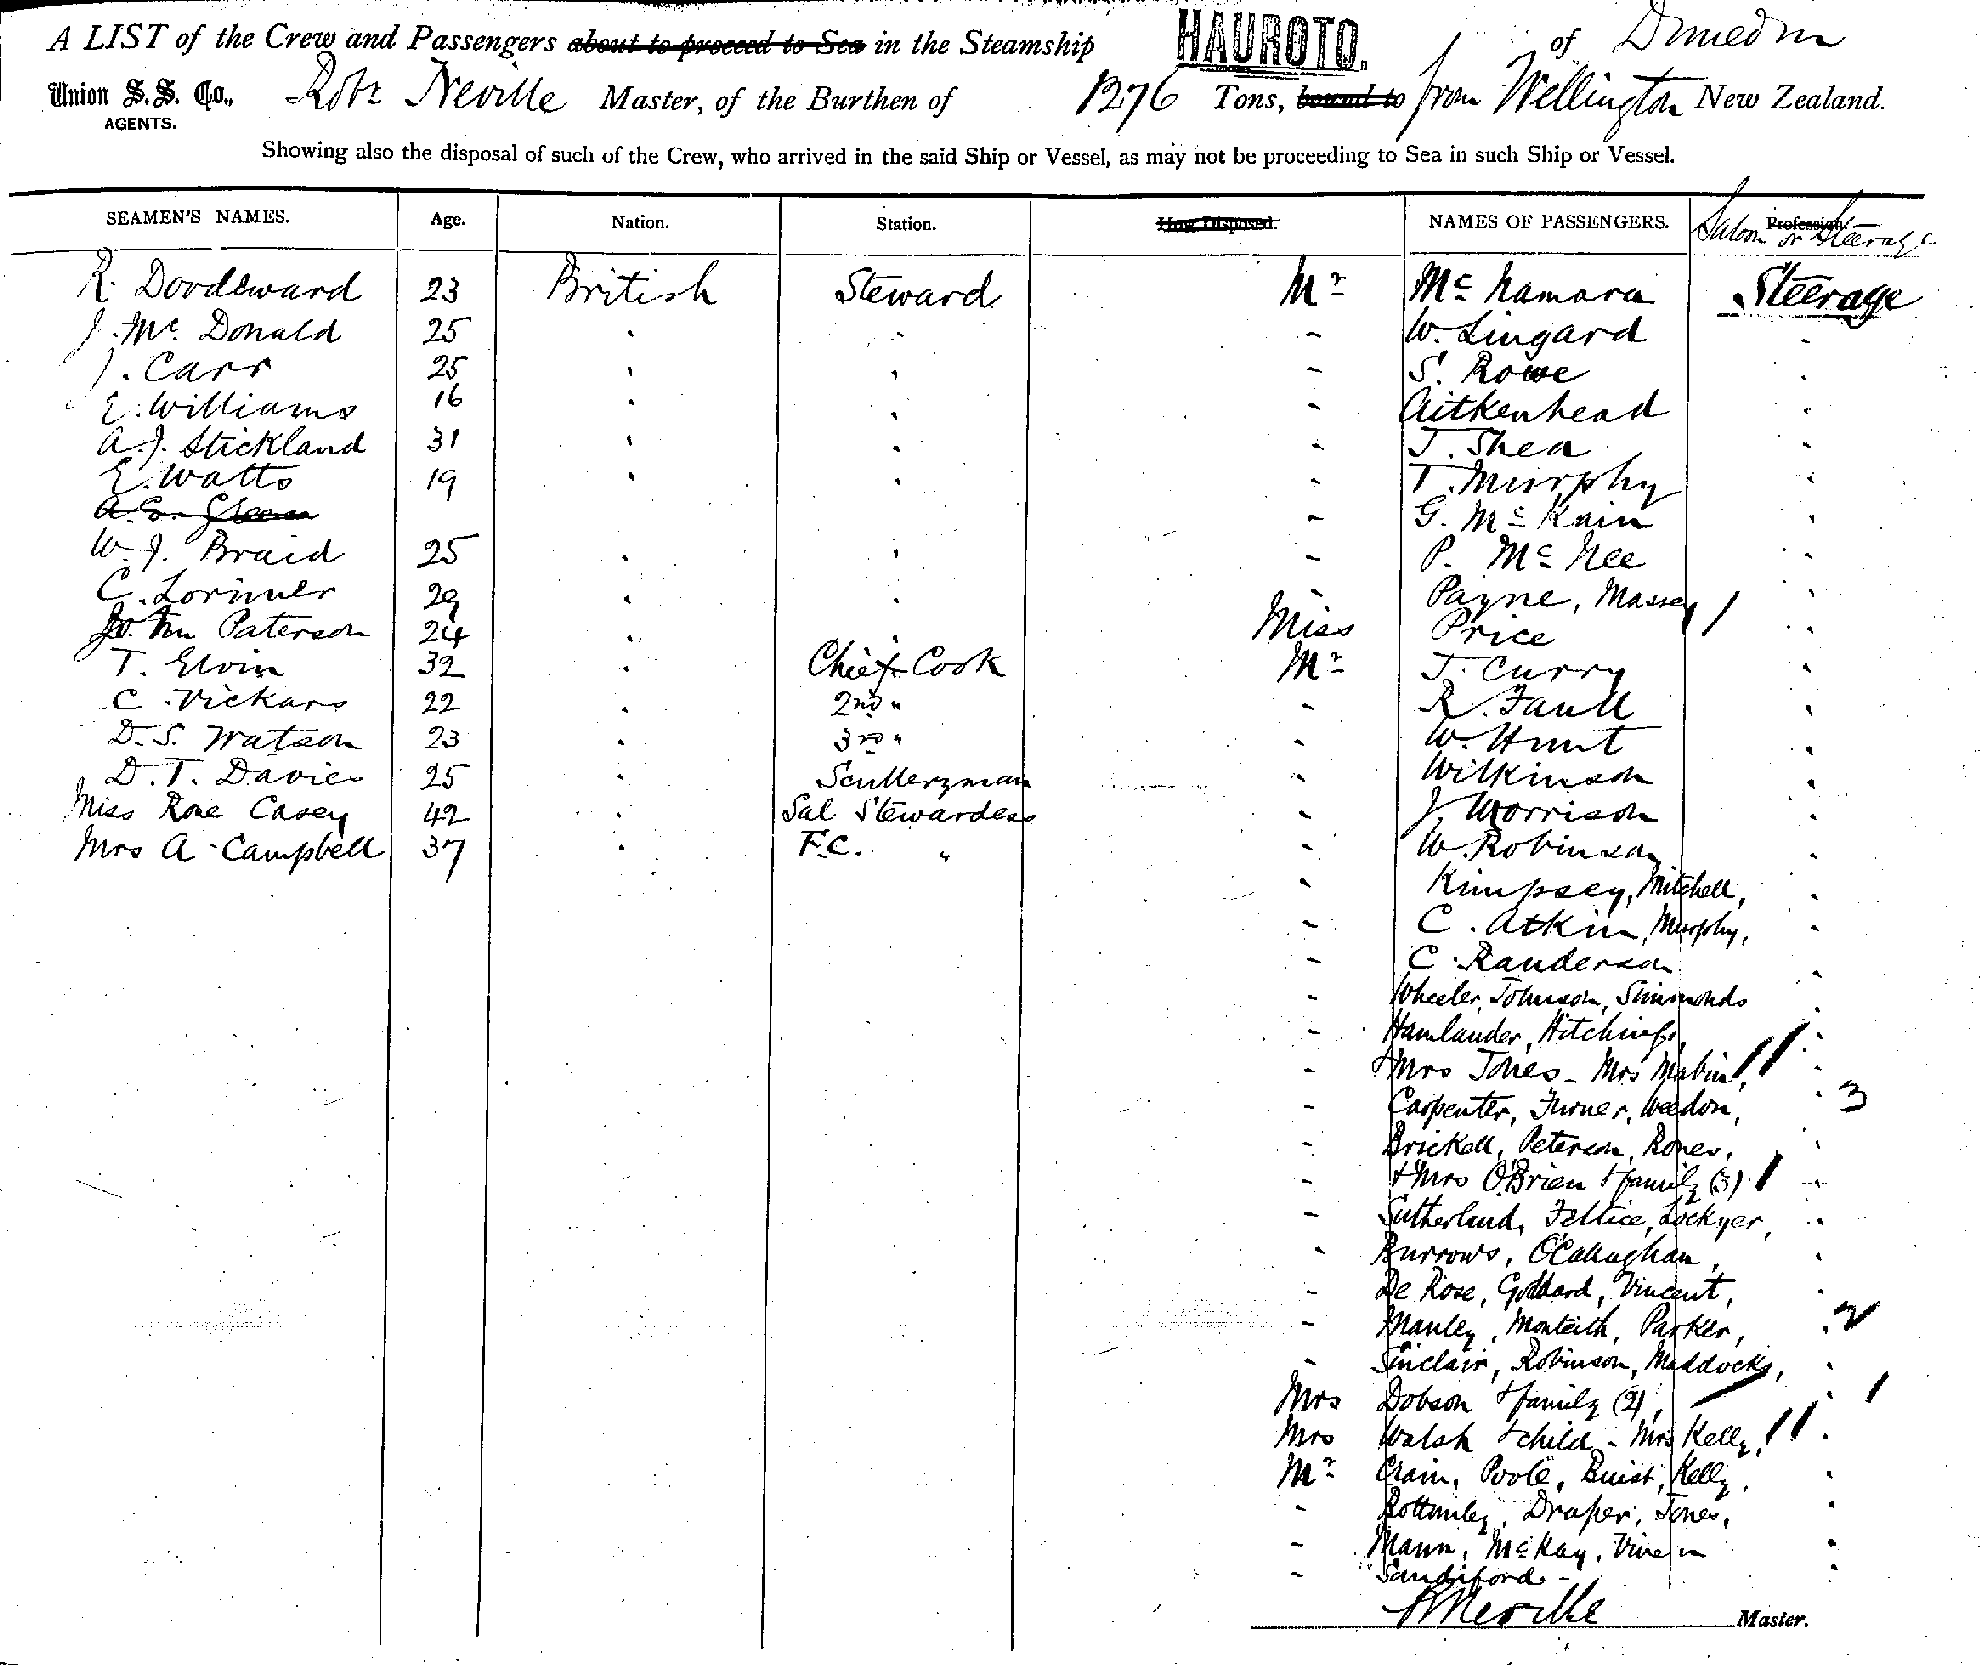 A LIST of the Crew and Passengers about to proceed to Sea in the Steamship HAUROTO. of Dunedin
Union S. S. Co., AGENTS. Robt Neville Master, of the Burthen of 1276 Tons, bound to from Wellington New Zealand.
Showing also the disposal of such of the Crew, who arrived in the said Ship or Vessel, as may not be proceeding to Sea in such Ship or Vessel.
SEAMEN'S NAMES. Age. Nation. Station. How Disposed. NAMES OF PASSENGERS. Profession. Saloon or Steerage
R. Doodeward 23 British Steward Mr Mc Namara Steerage
J. Mc Donald 25 " " - W. Lingard "
J. Carr 25 " " - S. Rowe "
E. Williams 16 " " - Aitkenhead "
A. J. Stickland 31 " " - T. Shea "
E. Watts 19 " " - T. Murphy "
- G. Mc Kain "
W. J. Braid 25 " " - P. Mc Nee "
C. Lorimer 29 " " - Payne, Massey "
John Paterson 24 " " Miss Price "
T. Elvin 32 " Chief Cook Mr J. Curry "
C. Vickars 22 " 2nd " - R. Faull "
D. S. Watson 23 " 3rd " - W. Hunt "
D. T. Davies 25 " Sculleryman - Wilkinson "
Miss Rose Casey 42 " Sal Stewardess - J. Morrison "
Mrs A. Campbell 37 " F.C. " - W. Robinson "
- Kimpsey, Mitchell, "
- C. Atkin, Murphy, "
- C. Randerson "
- Wheeler, Johnson, Simmonds
- Hamlander, Hitchings, "
- + Mrs Jones - Mrs Mabin, "
- Carpenter, Turner, Weedon, " 3
- Brickell, Peterson, Roper,
- + Mrs O'Brien + family (3) "
- Sutherland, Feltice, Lockyer, "
- Burrows, O'Callaghan, "
- De Rose, Goddard, Vincent, "
- Manley, Monteith, Parker, " 2
- Sinclair, Robinson, Maddocks, "
Mrs Dobson + family (2), " 1
Mrs Walsh + child - Mrs Kelly, "
Mr Crain, Poole, Buist, Kelly, "
- Draper, Jones, "
- Mann, McKay, Vine "
- Sandiford - "
R Neville Master.